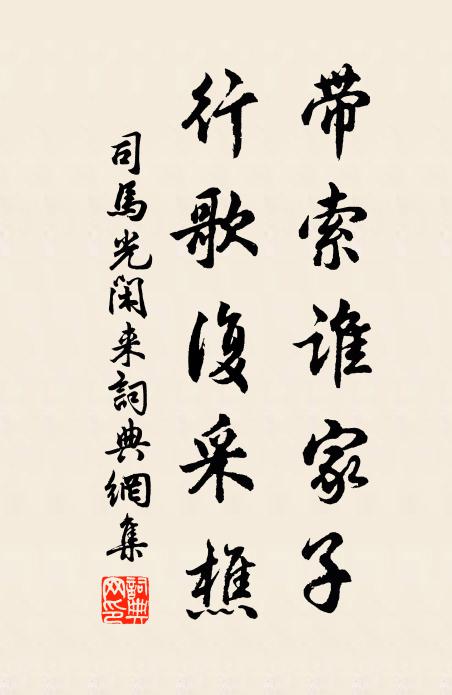 帶索誰家子
行歌復采樵
司馬光閑来詞典網集
詞典网印